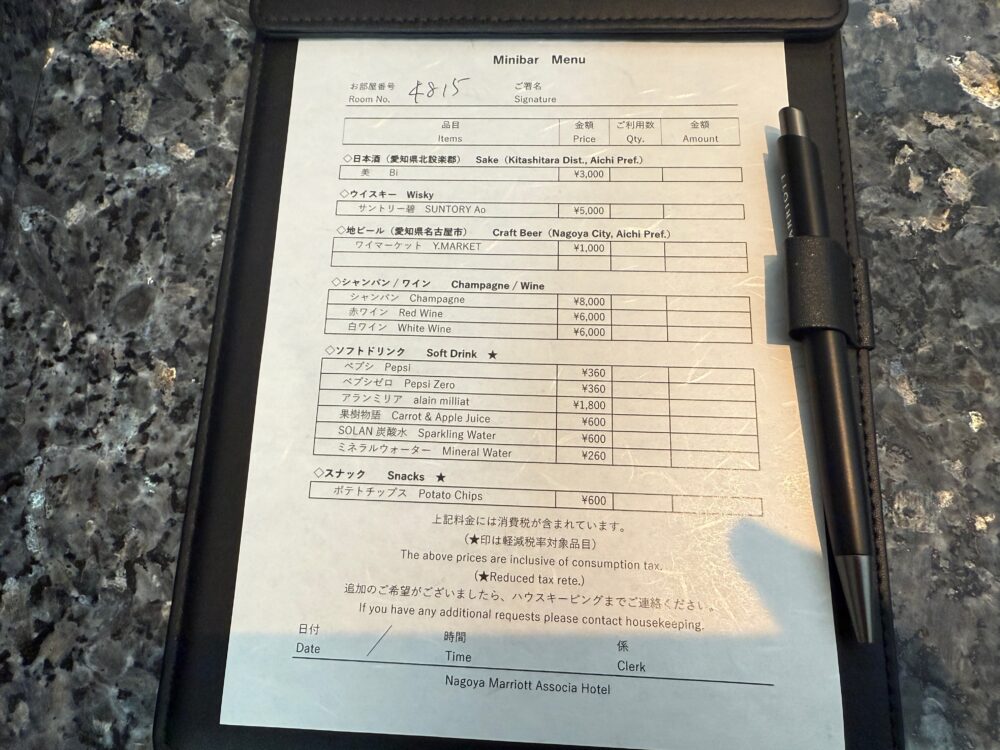 Minibar Menu
お部屋番号 4815 ご署名
Room No. Signature
品目 金額 ご利用数 金額
Items Price Qty. Amount
◇日本酒（愛知県北設楽郡） Sake（Kitashitara Dist., Aichi Pref.）
美 Bi ¥3,000
◇ウイスキー Wisky
サントリー碧 SUNTORY Ao ¥5,000
◇地ビール（愛知県名古屋市） Craft Beer（Nagoya City, Aichi Pref.）
ワイマーケット Y.MARKET ¥1,000
◇シャンパン / ワイン Champagne / Wine
シャンパン Champagne ¥8,000
赤ワイン Red Wine ¥6,000
白ワイン White Wine ¥6,000
◇ソフトドリンク Soft Drink ★
ペプシ Pepsi ¥360
ペプシゼロ Pepsi Zero ¥360
アランミリア alain milliat ¥1,800
果樹物語 Carrot & Apple Juice ¥600
SOLAN 炭酸水 Sparkling Water ¥600
ミネラルウォーター Mineral Water ¥260
◇スナック Snacks ★
ポテトチップス Potato Chips ¥600
上記料金には消費税が含まれています。
（★印は軽減税率対象品目）
The above prices are inclusive of consumption tax.
（★Reduced tax rete.）
追加のご希望がございましたら、ハウスキーピングまでご連絡ください。
If you have any additional requests please contact housekeeping.
日付 / 時間 係
Date Time Clerk
Nagoya Marriott Associa Hotel
MARRIOTT